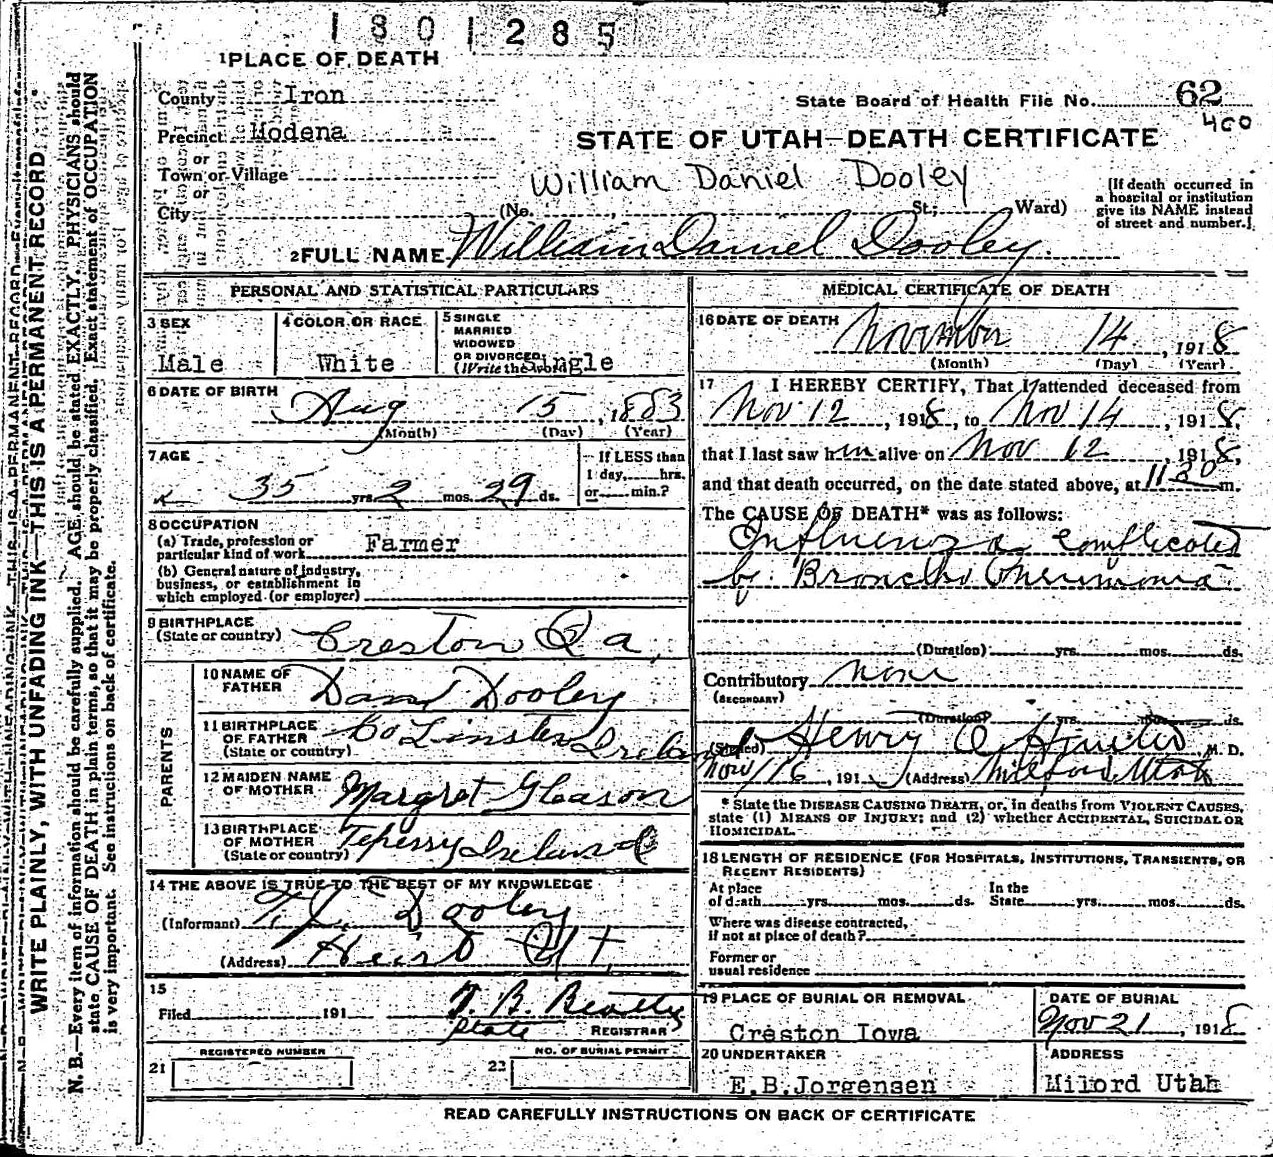 1801285
1 PLACE OF DEATH
County Iron
State Board of Health File No. 62
400
Precinct Modena
STATE OF UTAH—DEATH CERTIFICATE
or
Town or Village
William Daniel Dooley
or
City (No. , St.; Ward)
(If death occurred in
a hospital or institution
give its NAME instead
of street and number.)
2 FULL NAME William Daniel Dooley.
PERSONAL AND STATISTICAL PARTICULARS
3 SEX
Male
4 COLOR OR RACE
White
5 SINGLE
MARRIED
WIDOWED
OR DIVORCED
(Write the word) ingle
6 DATE OF BIRTH
Aug 15, 1883
(Month) (Day) (Year)
7 AGE
35 yrs. 2 mos. 29 ds.
If LESS than
1 day, hrs.
or min.?
8 OCCUPATION
(a) Trade, profession or
particular kind of work Farmer
(b) General nature of industry,
business, or establishment in
which employed (or employer)
9 BIRTHPLACE
(State or country) Creston Ia,
PARENTS
10 NAME OF
FATHER Danl Dooley
11 BIRTHPLACE
OF FATHER
(State or country) Co Linster Ireland
12 MAIDEN NAME
OF MOTHER Margret Gleason
13 BIRTHPLACE
OF MOTHER
(State or country) Teperry Ireland
14 THE ABOVE IS TRUE TO THE BEST OF MY KNOWLEDGE
(Informant) Dooley
(Address) Ut,
15
Filed 191 T. B. Beatty
State REGISTRAR
REGISTERED NUMBER
21
NO. OF BURIAL PERMIT
22
MEDICAL CERTIFICATE OF DEATH
16 DATE OF DEATH November 14, 1918
(Month) (Day) (Year)
17 I HEREBY CERTIFY, That I attended deceased from
Nov 12, 1918, to Nov 14, 1918,
that I last saw him alive on Nov 12, 1918,
and that death occurred, on the date stated above, at 1130 m.
The CAUSE OF DEATH* was as follows:
Influenza complicated
by Broncho Pneumonia
(Duration) yrs. mos. ds.
Contributory none
(SECONDARY)
(Duration) yrs. mos. ds.
(Signed) Henry M. D.
Nov 16, 191 (Address) Milford Utah
* State the DISEASE CAUSING DEATH, or, in deaths from VIOLENT CAUSES,
state (1) MEANS OF INJURY; and (2) whether ACCIDENTAL, SUICIDAL OR
HOMICIDAL.
18 LENGTH OF RESIDENCE (FOR HOSPITALS, INSTITUTIONS, TRANSIENTS, OR
RECENT RESIDENTS)
At place In the
of death yrs. mos. ds. State yrs. mos. ds.
Where was disease contracted,
if not at place of death?
Former or
usual residence
19 PLACE OF BURIAL OR REMOVAL
Creston Iowa
DATE OF BURIAL
Nov 21, 1918
20 UNDERTAKER
E.B.Jorgensen
ADDRESS
Milord Utah
READ CAREFULLY INSTRUCTIONS ON BACK OF CERTIFICATE
WRITE PLAINLY, WITH UNFADING INK—THIS IS A PERMANENT RECORD
N. B.—Every item of information should be carefully supplied. AGE should be stated EXACTLY. PHYSICIANS should
state CAUSE OF DEATH in plain terms, so that it may be properly classified. Exact statement of OCCUPATION
is very important. See instructions on back of certificate.